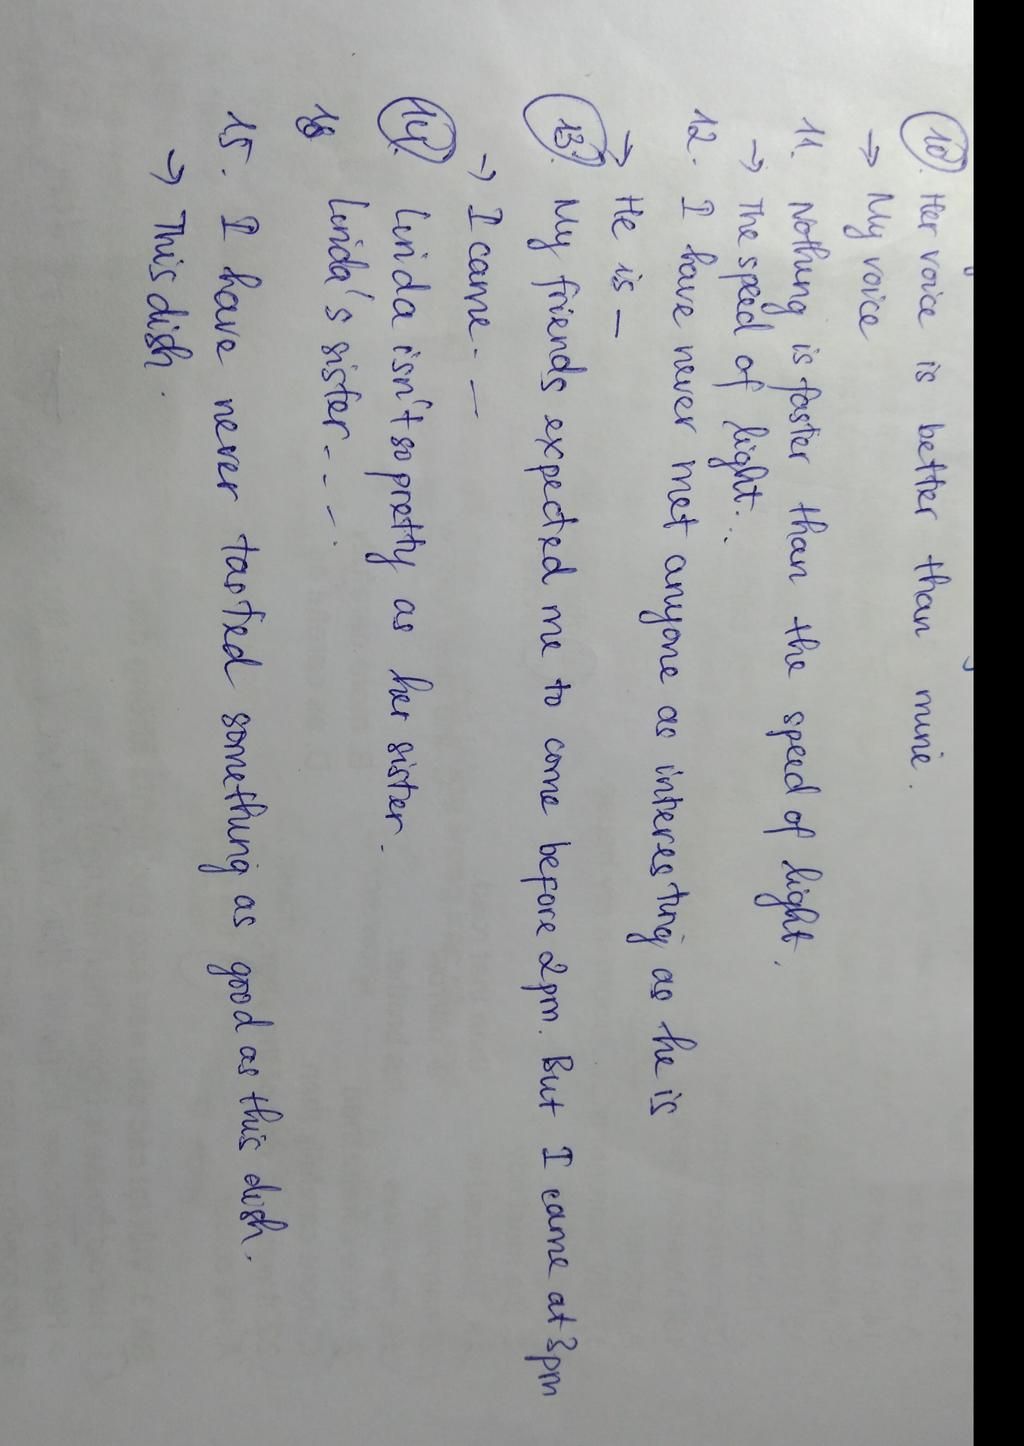 10. Her voice is better than mine.
→ My voice
11. Nothing is faster than the speed of light.
→ The speed of light...
12. I have never met anyone as interesting as he is
→ He is —
13. My friends expected me to come before 2pm. But I came at 3pm
→ I came. —
14. Linda isn't so pretty as her sister.
Linda's sister - - -.
15. I have never tasted something as good as this dish.
→ This dish.